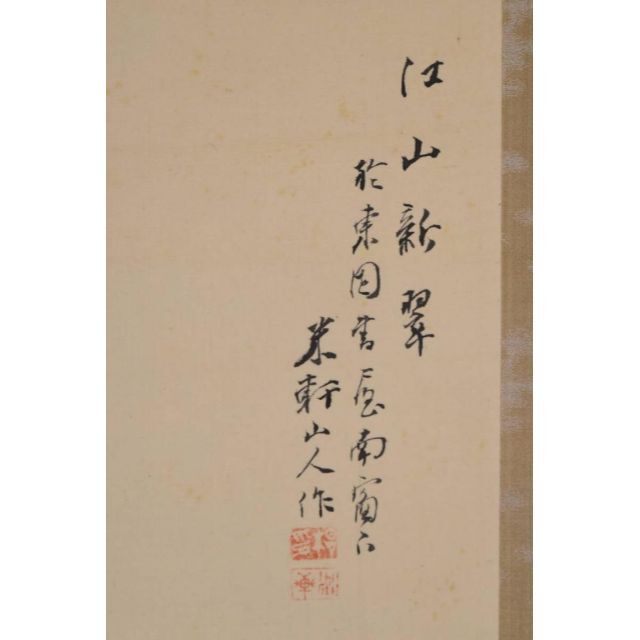 江山新翠
於東園書屋南窗下
米軒山人作